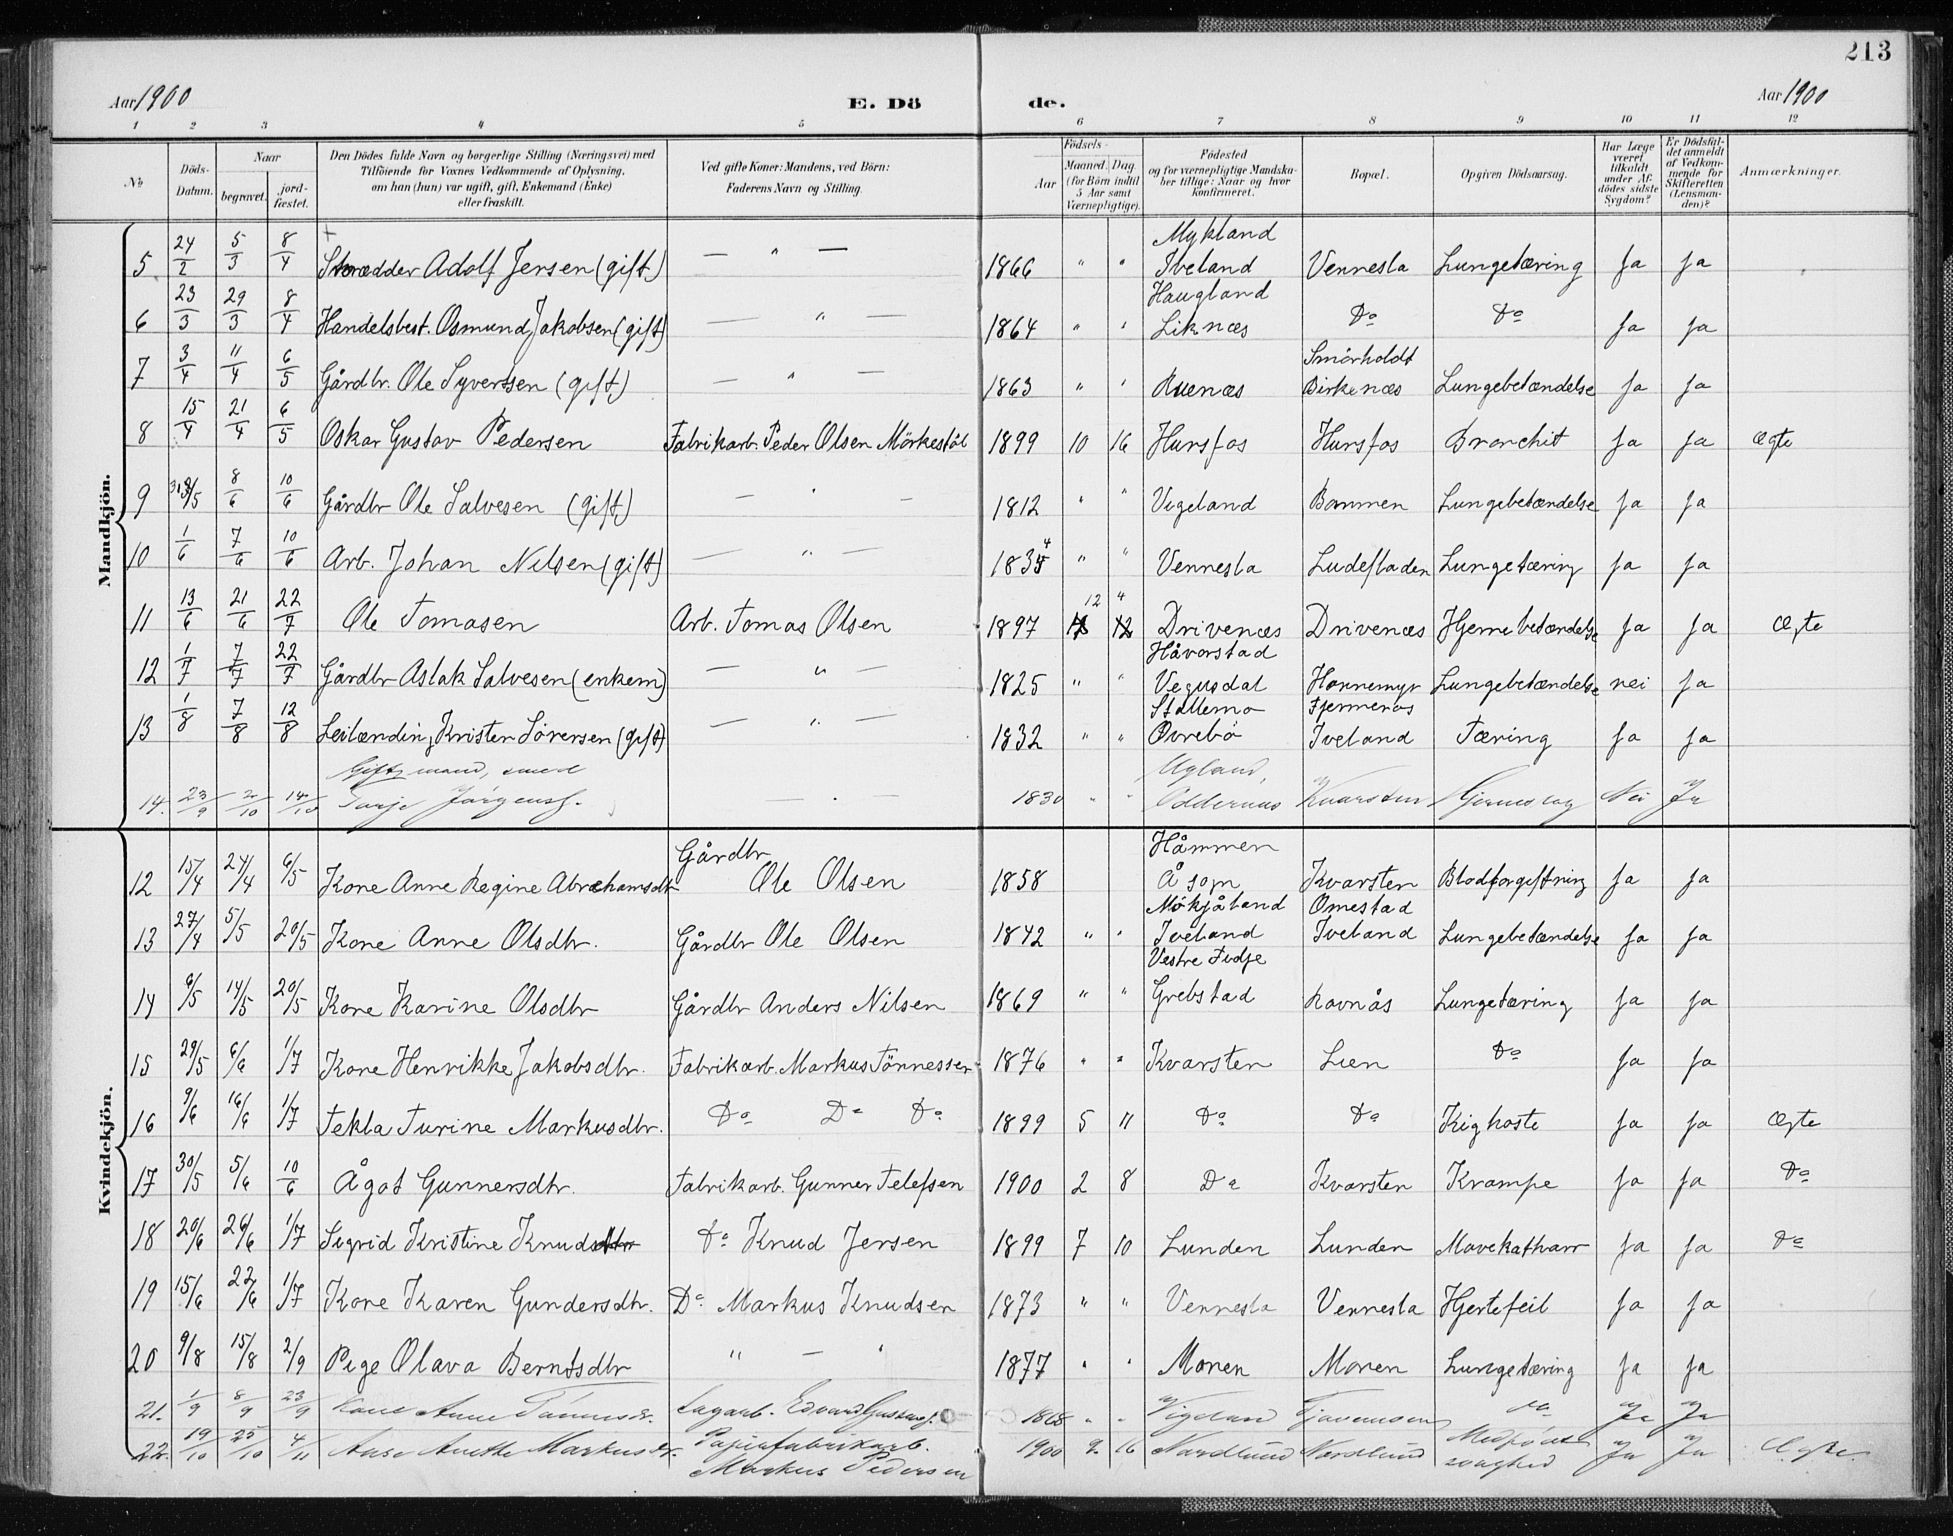 213
Aar 1900 E. Dö de. Aar 1900
1 2 3 4 5 6 7 8 9 10 11 12
No
Döds-Datum.
Naar
begravet.
jord-fæstet.
Den Dödes fulde Navn og borgerlige Stilling (Næringsvei) med
Tilföiende for Voxnes Vedkommende af Oplysning,
om han (hun) var ugift, gift, Enkemand (Enke)
eller fraskilt.
Ved gifte Koner: Mandens, ved Börn:
Faderens Navn og Stilling.
Födsels-
Aar
Maaned. Dag.
(for Börn indtil
5 Aar samt
Værnepligtige).
Födested
og for værnepligtige Mandska-
ber tillige: Naar og hvor
konfirmeret.
Bopæl.
Opgiven Dödsaarsag.
Har Læge
været
tilkaldt
under Af-
dödes sidste
Sygdom?
Er Dödsfal-
det anmeldt
af Vedkom-
mende for
Skifteretten
(Lensman-
den)?
Anmærkninger.
Mandkjön.
Mykland
5 24/2 5/3 8/4 Skrædder Adolf Jensen (gift) — " — 1866 " " Iveland Vennesla Lungetæring Ja Ja
Haugland
6 23/3 29/3 8/4 Handelsbest. Osmund Jakobsen (gift) — " — 1864 " " Liknæs Do Do Ja Ja
Smörholdt
7 3/4 11/4 6/5 Gårdbr. Ole Syvertsen (gift) — " — 1863 " " Ruenæs Birkenæs Lungebetændelse Ja Ja
8 15/4 21/4 6/5 Oskar Gustav Pedersen Fabrikarb. Peder Olsen Mörkestöl 1899 10 16 Hunsfos Hunsfos Bronchit Ja Ja Ægte
9 31/5 8/6 10/6 Gårdbr Ole Salvesen (gift) — " — 1812 " " Vigeland Bommen Lungebetændelse Ja Ja
10 1/6 7/6 10/6 Arb. Johan Nilsen (gift) — " — 1834 " " Vennesla Ludefladen Lungetæring Ja Ja
11 13/6 21/6 22/7 Ole Tomasen Arb. Tomas Olsen 1897 12 4 Drivenæs Drivenæs Hjernebetændelse Ja Ja Ægte
Håvorstad
12 1/7 7/7 22/7 Gårdbr Aslak Salvesen (enkem) — " — 1825 " " Vegusdal Honnemyr Lungebetændelse nei Ja
Stallemo Fjermeros
13 1/8 7/8 12/8 Leilænding Kristen Sörensen (gift) — " — 1832 " " Ovrebö Iveland Tæring Ja Ja
Gift mand, smed Ugland,
14. 23/9 2/10 14/10 Tarje Jørgens. — " — 1830 " " Oddernes Kvarsten Hjerneslag Nei Ja
Kvindekjön.
Gårdbr Håmmen
12 15/4 24/4 6/5 Kone Anne Regine Abrahamsdtr Ole Olsen 1858 Å sogn Kvarsten Blodforgiftning Ja Ja
Mökjåland Omestad
13 27/4 5/5 20/5 Kone Anne Olsdtr. Gårdbr Ole Olsen 1842 " " Iveland Iveland Lungebetændelse Ja Ja
Vestre Fidje
14 6/5 14/5 20/5 Kone Karine Olsdtr Gårdbr Anders Nilsen 1869 " " Grebstad Ravnås Lungetæring Ja Ja
15 29/5 6/6 1/7 Kone Henrikke Jakobsdtr. Fabrikarb. Markus Tönnessen 1876 " " Kvarsten Lien Do Ja Ja
16 9/6 16/6 1/7 Tekla Turine Markusdtr. Do Do Do 1899 5 11 Do Do Kighoste Ja Ja Ægte
17 30/5 5/6 10/6 Ågot Gunnersdtr. Fabrikarb. Gunner Telefsen 1900 2 8 Do Kvarsten Krampe Ja Ja Do
18 20/6 26/6 1/7 Sigrid Kristine Knudsdtr Do Knud Jensen 1899 7 10 Lunden Lunden Mavekatharr Ja Ja Do
19 15/6 22/6 1/7 Kone Karen Gundersdtr. Do Markus Knudsen 1873 " " Vennesla Vennesla Hjertefeil Ja Ja
20 9/8 15/8 2/9 Pige Olava Berntsdtr " — " 1877 " " Monen Monen Lungetæring Ja Ja
21. 1/9 8/9 23/9 Kone Anne Sagarb. Edvard Gustavs. 1868 " " Vigeland Do Ja Ja
22. 19/10 25/10 4/11 Anethe Markusdtr. Papirfabrikarb. 1900 9 16 Nordlund Nordlund Medfødt Ja Ja Ægte.
Markus Pedersen svaghed